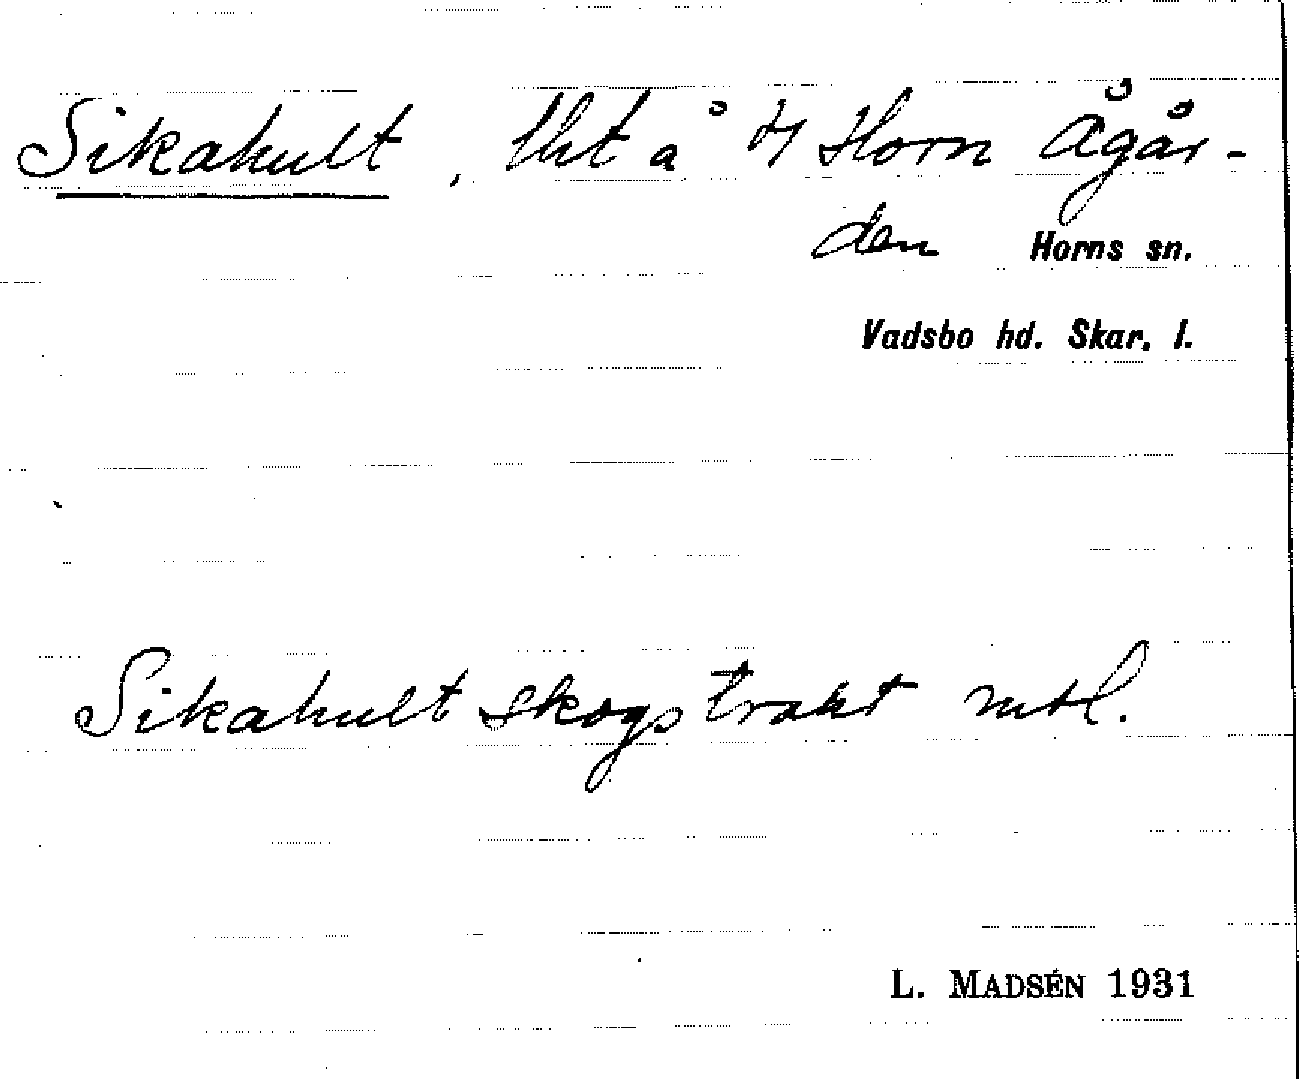 Sikahult, tht å 4/ Horn Ågår-
den Horns sn.
Vadsbo hd. Skar. l.
Sikahult skogstrakt mtl.
L. MADSÉN 1931